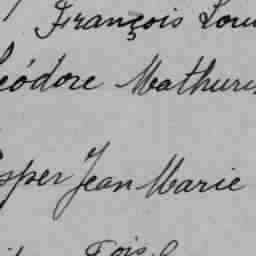 François Lou
éódore Mathurin
sper Jean Marie